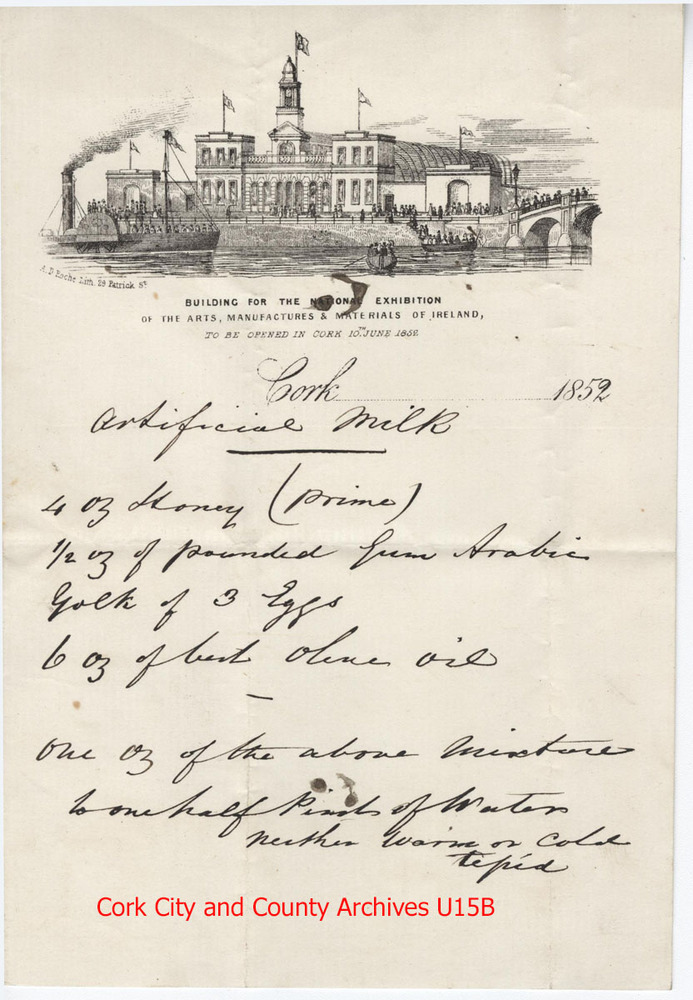 A. D. Roche Lith. 29 Patrick St
BUILDING FOR THE NATIONAL EXHIBITION
OF THE ARTS, MANUFACTURES & MATERIALS OF IRELAND,
TO BE OPENED IN CORK 10TH JUNE 1852
Cork 1852
Artificial Milk
4 oz Honey (prime)
1/2 oz of pounded Gum Arabic
Yolk of 3 Eggs
6 oz of best Olive oil
One oz of the above Mixture
to one half Pint of Water
neither Warm or Cold
tepid
Cork City and County Archives U15B